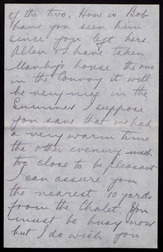 of the two. How is Bob
have you seen him
since you left here
Allen & I have taken
Manby's house the one
in the Convoy it will
be very nice in the
Summer I suppose
you saw that we had
a very warm time
the other evening much
too close to be pleasant
I can assure you
the nearest 10 yards
from the Chalet. You
must be busy now
but I do wish you